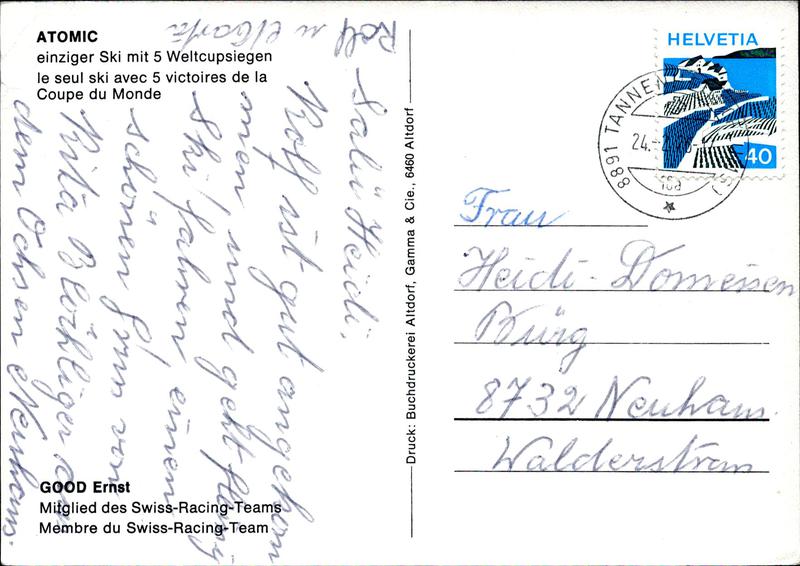 ATOMIC
einziger Ski mit 5 Weltcupsiegen
le seul ski avec 5 victoires de la
Coupe du Monde
Salü Heidi,
Rolf ist gut angekom
men, und geht fleissig
Ski fahren, einen
schönen Gruss von
Rita Blöchliger a
dem Ochsen Neuhaus.
Rolf u
GOOD Ernst
Mitglied des Swiss-Racing-Teams
Membre du Swiss-Racing-Team
Druck: Buchdruckerei Altdorf, Gamma & Cie., 6460 Altdorf
HELVETIA
40
8891 TANNEN
24.-2.
Frau
Heidi-Domeisen
Bürg
8732 Neuhaus
Walderstrass